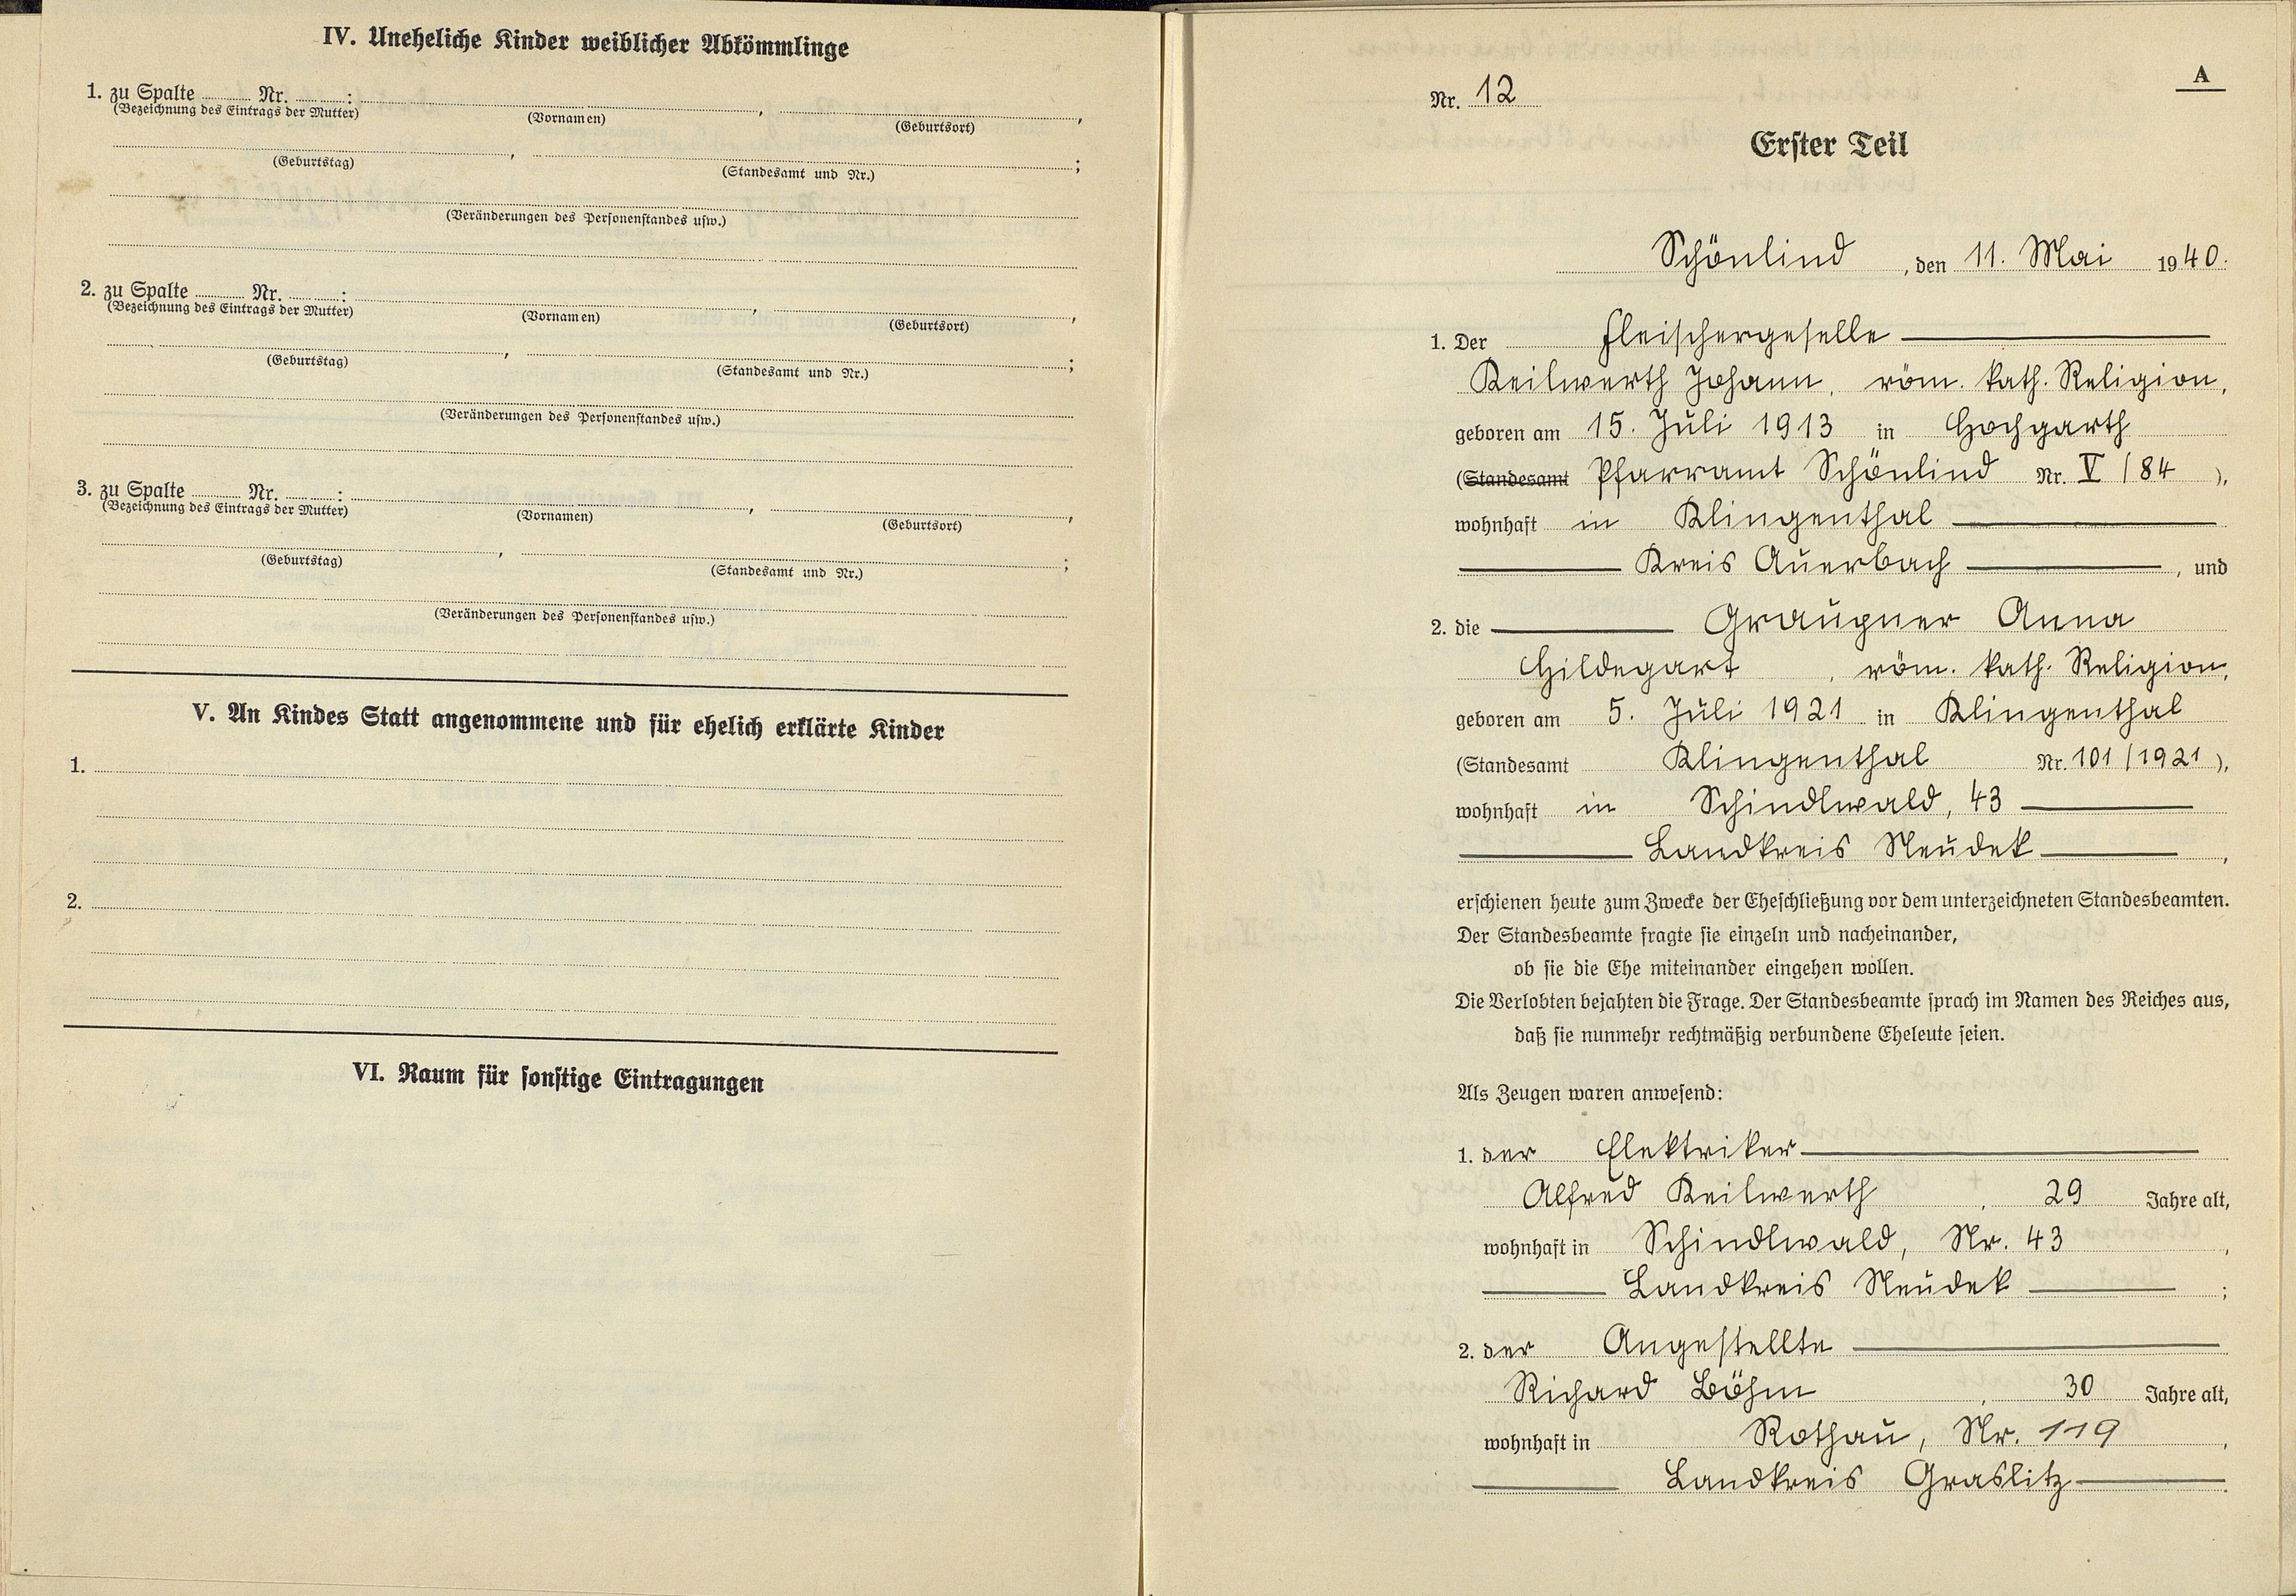 IV. Uneheliche Kinder weiblicher Abkömmlinge
1. zu Spalte Nr. : , ,
(Bezeichnung des Eintrags der Mutter) (Vornamen) (Geburtsort)
, ;
(Geburtstag) (Standesamt und Nr.)
(Veränderungen des Personenstandes usw.)
2. zu Spalte Nr. : , ,
(Bezeichnung des Eintrags der Mutter) (Vornamen) (Geburtsort)
, ;
(Geburtstag) (Standesamt und Nr.)
(Veränderungen des Personenstandes usw.)
3. zu Spalte Nr. : , ,
(Bezeichnung des Eintrags der Mutter) (Vornamen) (Geburtsort)
, ;
(Geburtstag) (Standesamt und Nr.)
(Veränderungen des Personenstandes usw.)
V. An Kindes Statt angenommene und für ehelich erklärte Kinder
1.
2.
VI. Raum für sonstige Eintragungen
A
Nr. 12
Erster Teil
Schönlind, den 11. Mai 1940.
1. Der Fleischergeselle
Keilwerth Johann, röm. kath. Religion,
geboren am 15. Juli 1913 in Hochgarth
(Standesamt Pfarramt Schönlind Nr. V / 84 ),
wohnhaft in Klingenthal
Kreis Auerbach, und
2. die Graupner Anna
Hildegart, röm. kath. Religion,
geboren am 5. Juli 1921 in Klingenthal
(Standesamt Klingenthal Nr. 101/1921 ),
wohnhaft in Schindlwald, 43
Landkreis Neudek,
erschienen heute zum Zwecke der Eheschließung vor dem unterzeichneten Standesbeamten.
Der Standesbeamte fragte sie einzeln und nacheinander,
ob sie die Ehe miteinander eingehen wollen.
Die Verlobten bejahten die Frage. Der Standesbeamte sprach im Namen des Reiches aus,
daß sie nunmehr rechtmäßig verbundene Eheleute seien.
Als Zeugen waren anwesend:
1. der Elektriker
Alfred Keilwerth, 29 Jahre alt,
wohnhaft in Schindlwald, Nr. 43,
Landkreis Neudek;
2. der Angestellte
Richard Böhm, 30 Jahre alt,
wohnhaft in Rothau, Nr. 119,
Landkreis Graslitz.